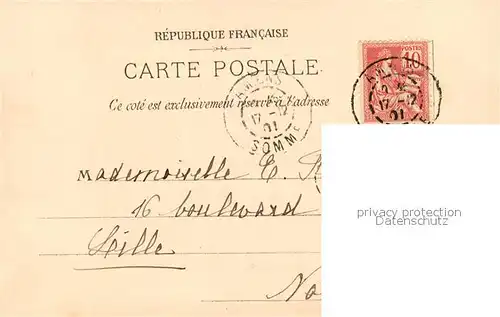 RÉPUBLIQUE FRANÇAISE
CARTE POSTALE
Ce côté est exclusivement réservé à l'adresse
AMIENS
17 - 12
01
SOMME
POSTES
10
17 - 12
01
Mademoiselle E.
16 boulevard
Lille
privacy protection
Datenschutz